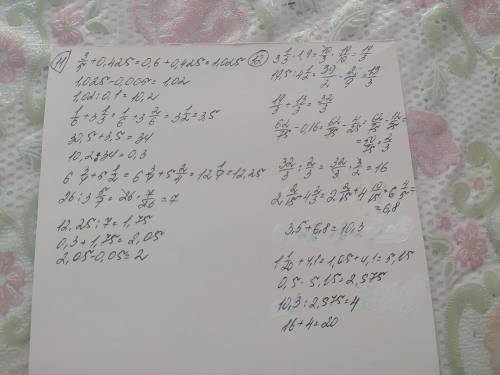 11) 3/5 + 0,425 = 0,6 + 0,425 = 1,025
1,025 - 0,005 = 1,02
1,02 : 0,1 = 10,2
1/6 + 3 1/3 = 1/6 + 3 2/6 = 3 1/2 = 3,5
30,5 + 3,5 = 34
10,2 : 34 = 0,3
6 3/4 + 5 1/2 = 6 3/4 + 5 2/4 = 12 1/4 = 12,25
26 : 3 5/7 = 26 · 7/26 = 7
12,25 : 7 = 1,75
0,3 + 1,75 = 2,05
2,05 - 0,05 = 2
12) 3 1/3 · 1,9 = 10/3 · 19/10 = 19/3
19,5 : 4 1/2 = 39/2 · 2/9 = 13/3
19/3 + 13/3 = 32/3
62/75 - 0,16 = 62/75 - 4/25 = 62/75 - 12/75 =
= 50/75 = 2/3
32/3 : 2/3 = 32/3 · 3/2 = 16
2 2/15 + 4 2/3 = 2 2/15 + 4 10/15 = 6 4/5 =
= 6,8
3,5 + 6,8 = 10,3
1 1/20 + 4,1 = 1,05 + 4,1 = 5,15
0,5 · 5,15 = 2,575
10,3 : 2,575 = 4
16 + 4 = 20